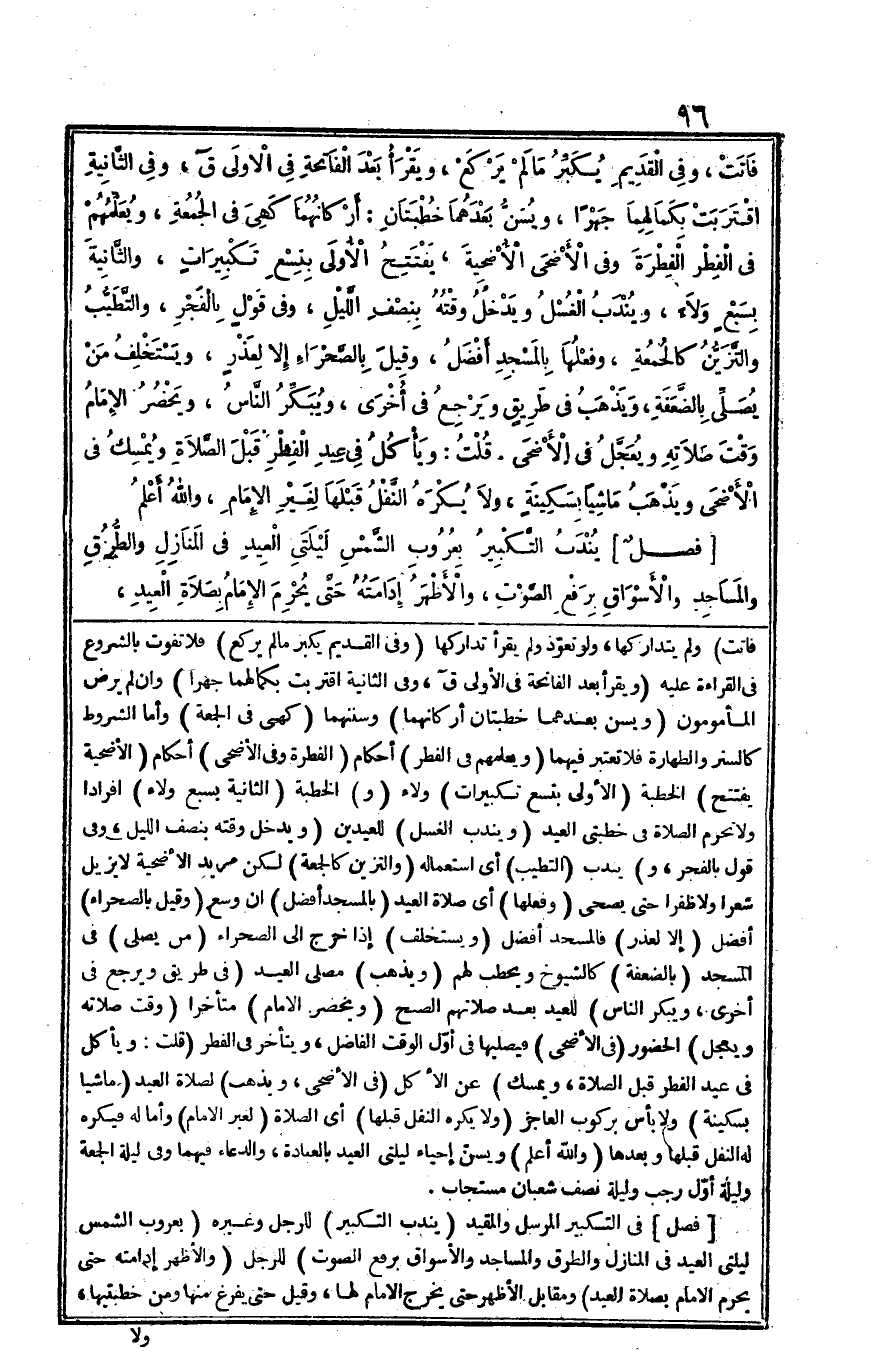 ٩٦
فَاتَتْ ، وفى الْقَدِيمِ يُكَبِّرُ مَالَمْ يَرْكَعْ ، ويَقْرَأُ بَعْدَ الْفَاتِحةِ فِى الْأولَى قَ ، وفى الثَّانِيةِ
اقْتَرَبَتْ بِكَمالِهِما جَهْرًا ، ويُسَنُّ بَعْدَهُمَا خُطْبَتَانِ : أرْكانُهُمَا كَهِىَ فى الجُمُعَةِ ، ويُعَلِّمُهُمْ
فى الْفِطْرِ الْفِطْرَةَ وفى الْأَضْحَى الْأُضْحِيةَ ، يَفْتَتِحُ الْأُولَى بِتِسْعِ تَكْبِيرَاتٍ ، والثَّانِيةَ
بِسَبْعٍ وَلَاءً ، ويُنْدَبُ الْغُسْلُ ويَدْخُلُ وقْتُهُ بِنِصْفِ اللَّيْلِ ، وفى قَوْلٍ بِالْفَجْرِ ، والتَّطَيُّبُ
والتَّزَيُّنُ كالجُمُعَةِ ، وفِعْلُهَا بِالمَسْجِدِ أفْضَلُ ، وقِيلَ بِالصَّحْرَاءِ إلا لِعُذْرٍ ، ويَسْتَخْلِفُ مَنْ
يُصَلِّى بِالضَّعَفَةِ ، ويَذْهَبُ فى طَرِيقٍ ويَرْجِعُ فى أُخْرَى ، ويُبَكِّرُ النَّاسُ ، ويَحْضُرُ الإمَامُ
وَقْتَ صَلَاتِهِ ويُعَجِّلُ فى الْأَضْحَى . قُلْتُ : ويَأْكُلُ فى عِيدِ الْفِطْرِ قَبْلَ الصَّلَاةِ ويُمْسِكُ فى
الْأَضْحَى ويَذْهَبُ مَاشِيًا بِسَكِينَةٍ ، ولَا يُكْرَهُ النَّفْلُ قَبْلَهَا لِغَيْرِ الإمَامِ ، واللهُ أعْلَمُ
[ فصــلٌ ] يُنْدَبُ التَّكْبِيرُ بِغُرُوبِ الشَّمْسِ لَيْلَتَىِ الْعِيدِ فى المَنَازِلِ والطُّرُقِ
والمَسَاجِدِ والْأَسْوَاقِ بِرَفْعِ الصَّوْتِ ، والْأَظْهَرُ إدَامَتُهُ حَتَّى يُحْرِمَ الإمَامُ بِصَلَاةِ الْعِيدِ ،
فاتت) ولم يتداركها، ولو تعوّذ ولم يقرأ تداركها (وفى القـديم يكبر مالم يركع) فلا تفوت بالشروع
فى القراءة عليه (ويقرأ بعد الفاتحة فى الأولى قَ ، وفى الثانية اقتربت بكمالهما جهرا) وان لم يرض
المأمومون (ويسن بعـدهمـا خطبتان أركانهما) وسننهما (كهـى فى الجمعة) وأما الشروط
كالستر والطهارة فلا تعتبر فيهما (ويعلمهم فى الفطر) أحكام (الفطرة وفى الأضحى) أحكام (الأضحية
يفتتح) الخطبة (الأولى بتسع تكبيرات) ولاء (و) الخطبة (الثانية بسبع ولاء) افرادا
ولا تحرم الصلاة فى خطبتى العيد (ويندب الغسل) للعيدين (ويدخل وقته بنصف الليل ، وفى
قول بالفجر ، و) يندب (التطيب) أى استعماله (والتزين كالجمعة) لكن مريد الأضحية لا يزيل
شعرا ولا ظفرا حتى يضحى (وفعلها) أى صلاة العيد (بالمسجد أفضل) ان وسع (وقيل بالصحراء)
أفضل (إلا لعذر) فالمسجد أفضل (ويستخلف) إذا خرج الى الصحراء (من يصلى) فى
المسجد (بالضعفة) كالشيوخ ويخطب لهم (ويذهب) مصلى العيـد (فى طريق ويرجع فى
أخرى ، ويبكر الناس) للعيد بعـد صلاتهم الصبح (ويحضر الامام) متأخرا (وقت صلاته
ويعجل) الحضور (فى الأضحى) فيصليها فى أوّل الوقت الفاضل ، ويتأخر فى الفطر (قلت : ويأكل
فى عيد الفطر قبل الصلاة ، ويمسك) عن الأكل (فى الأضحى ، ويذهب) لصلاة العيد (ماشيا
بسكينة) ولا بأس بركوب العاجز (ولا يكره النفل قبلها) أى الصلاة (لغير الامام) وأما له فيكره
له النفل قبلها وبعدها (والله أعلم) ويسنّ إحياء ليلتى العيد بالعبادة ، والدعاء فيهما وفى ليلة الجمعة
وليلة أوّل رجب وليلة نصف شعبان مستجاب .
[ فصل ] فى التكبير المرسل والمقيد (يندب التكبير) للرجل وغـيره (بغروب الشمس
ليلتى العيد فى المنازل والطرق والمساجد والأسواق برفع الصوت) للرجل (والأظهر إدامته حتى
يحرم الامام بصلاة العيد) ومقابل الأظهر حتى يخرج الامام لهـا ، وقيل حتى يفرغ منها ومن خطبتيها ،
ولا